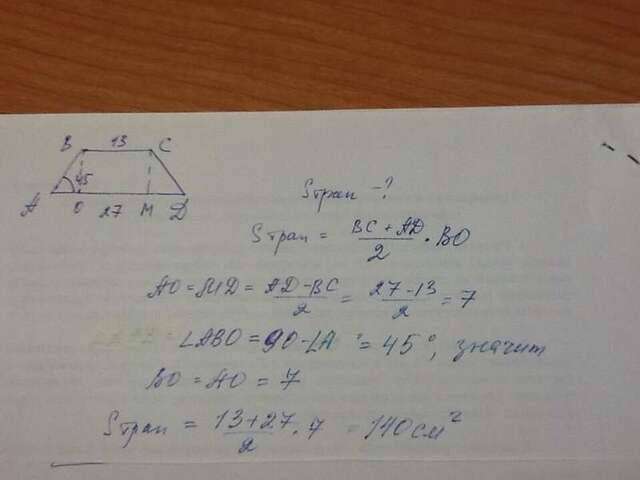 B 13 C
45
A O 27 M D
Sтрап -?
Sтрап = BC + AD / 2 · BO
AO = MD = AD - BC / 2 = 27 - 13 / 2 = 7
∠ABO = 90 - ∠A = 45°, значит
BO = AO = 7
Sтрап = 13 + 27 / 2 · 7 = 140 см²